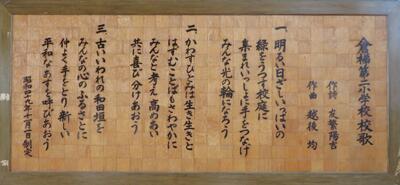 倉梯第二小学校校歌
作詩 友繁陽吉
作曲 越後 均
一、明るい日ざしいっぱいの
緑をうつす校庭に
集まれいっしょに手をつなげ
みんな光の輪になろう
二、かわすひとみは生き生きと
はずむことばもさわやかに
みんなと考え高めあい
共に喜び分けあおう
三、古いいわれの和田垣を
みんなの心のふるさとに
仲よく手をとり新しい
平和なあすを呼びあおう
昭和四十九年十月一日制定